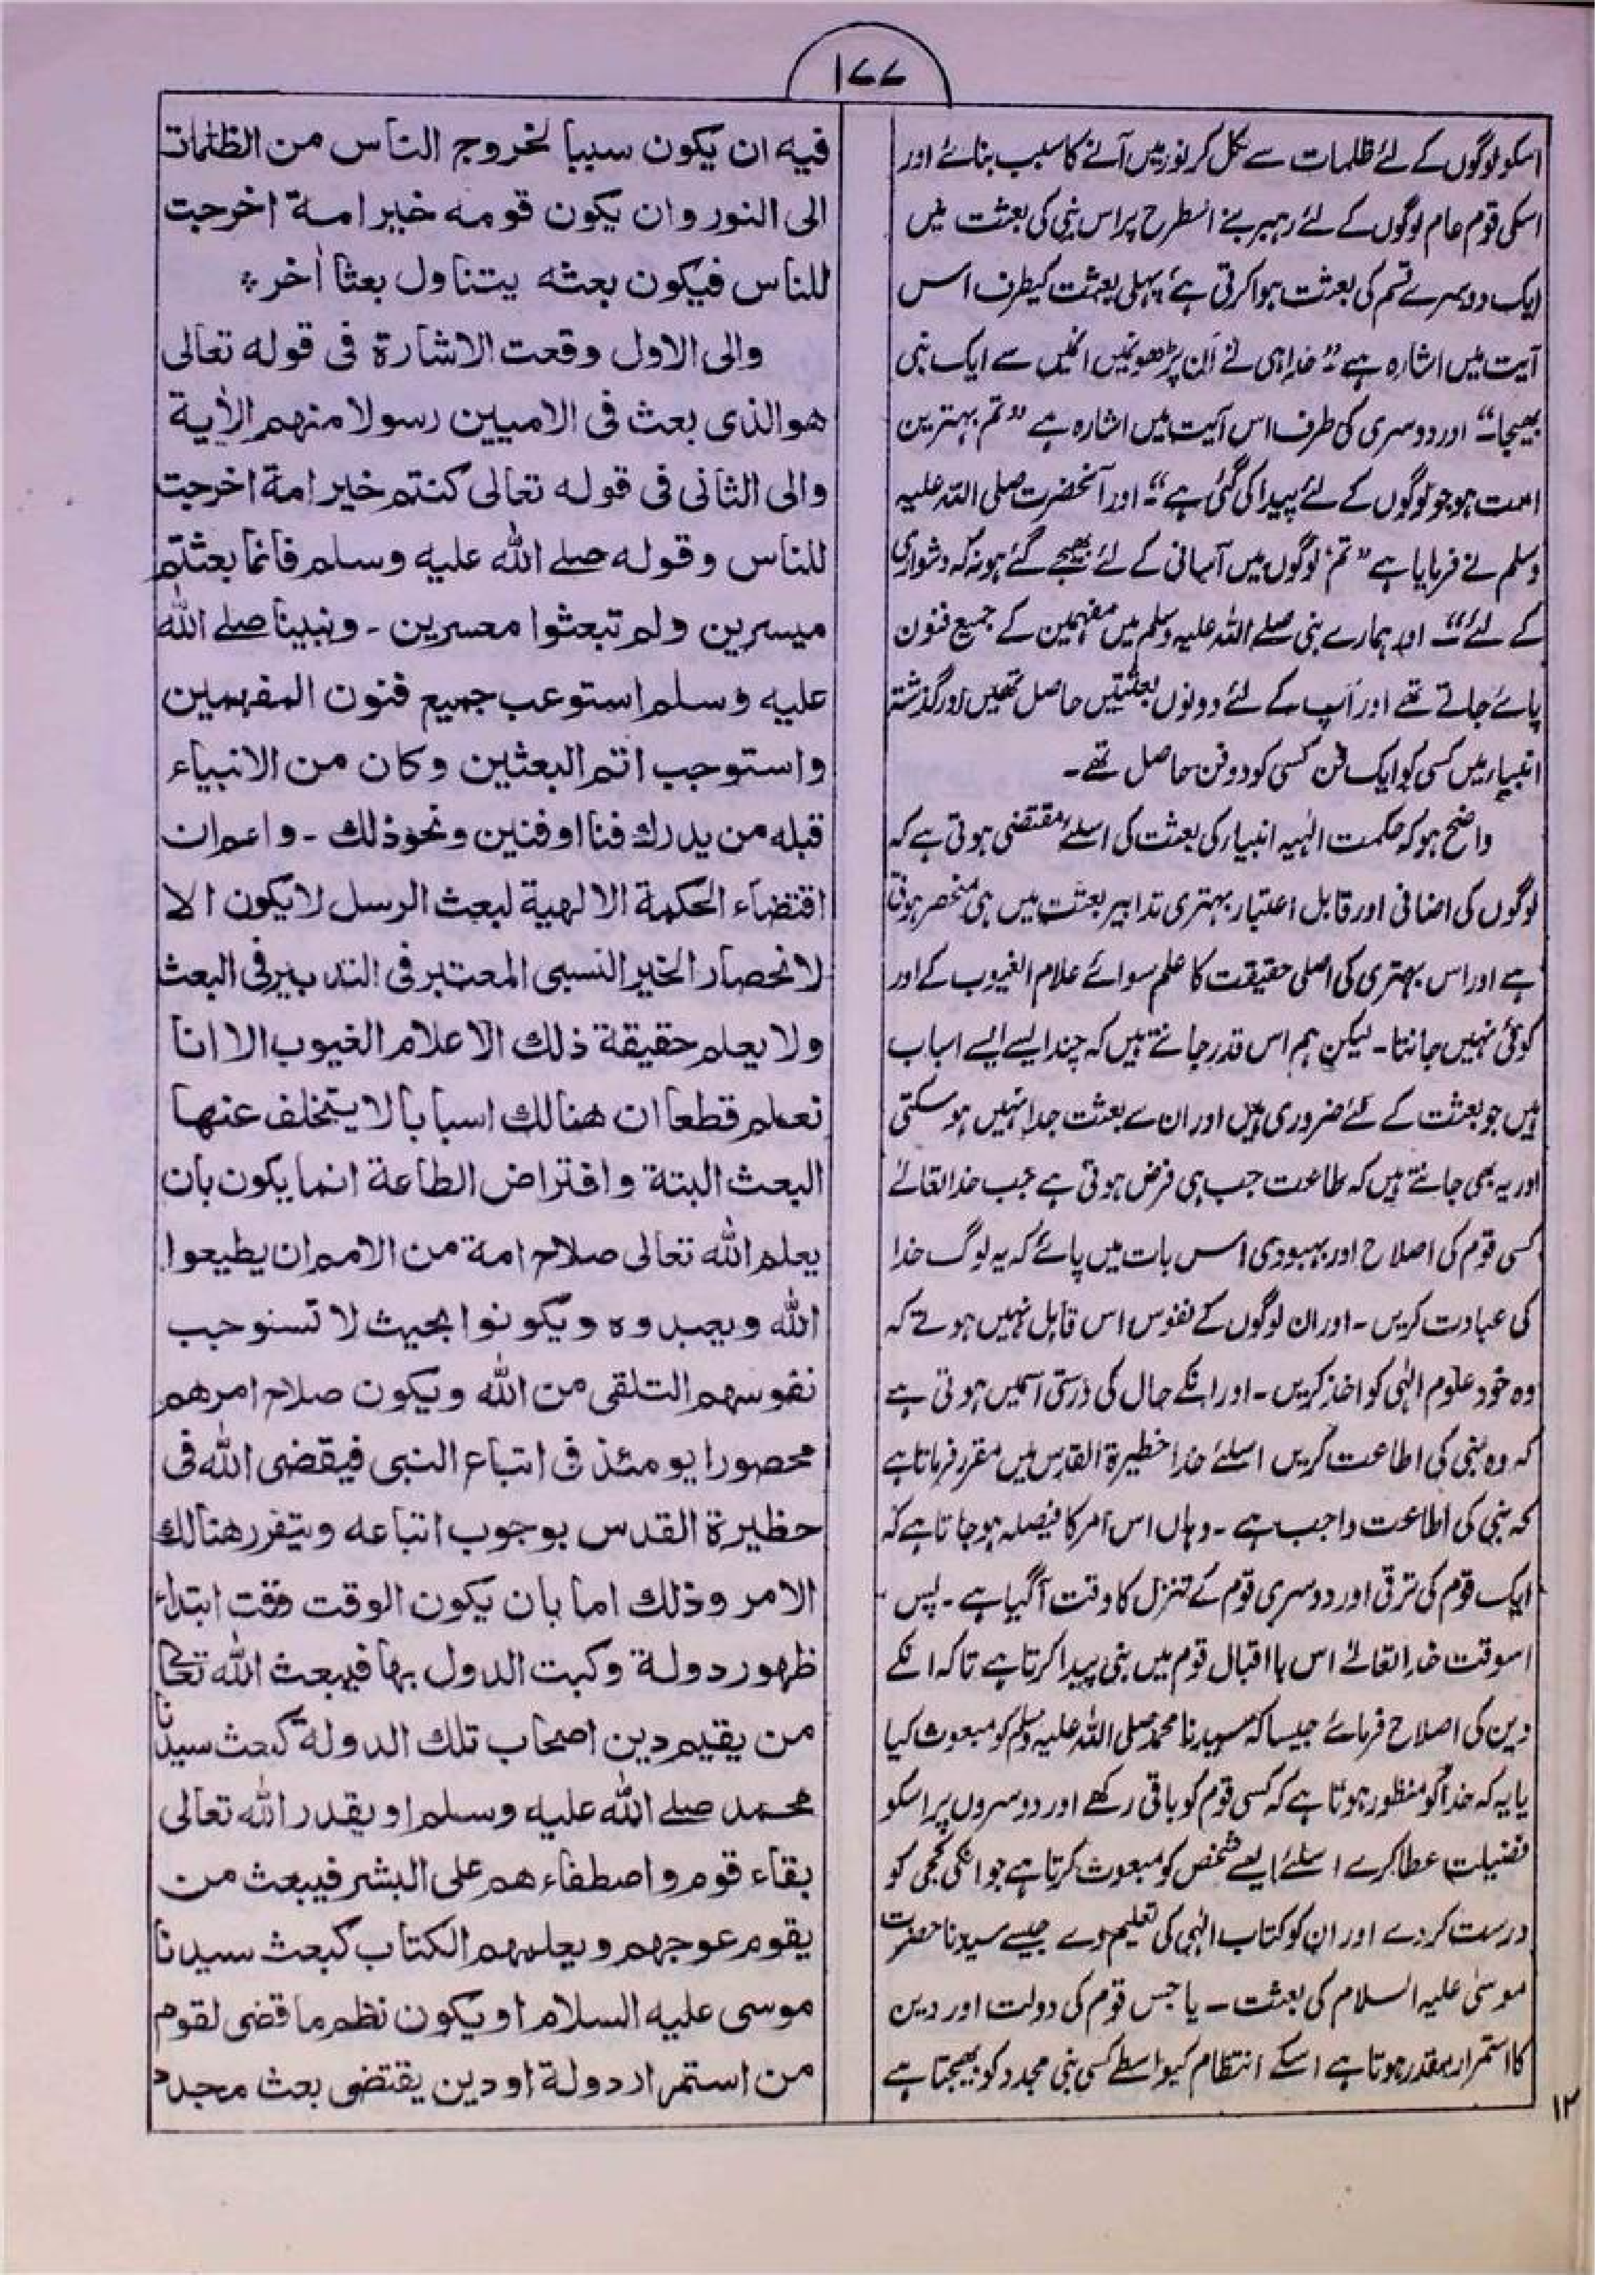 ۱۷۷
اسکو لوگوں کے لئے ظلمات سے نکل کر نور میں آنے کا سبب بنائے اور
اسکی قوم عام لوگوں کے لئے رہبر بنے اسطرح پر اس نبی کی بعثت میں
ایک دوسرے قسم کی بعثت ہوا کرتی ہے، پہلی بعثت کیطرف اس
آیت میں اشارہ ہے "خدا ہی نے اَن پڑھونمیں انہیں سے ایک نبی
بھیجا" اور دوسری کی طرف اس آیت میں اشارہ ہے "تم بہترین
امت ہو جو لوگوں کے لئے پیدا کی گئی ہے" اور آنحضرت صلی اللہ علیہ
وسلم نے فرمایا ہے "تم لوگوں میں آسانی کے لئے بھیجے گئے ہو نہ کہ دشواری
کے لئے" اور ہمارے نبی صلے اللہ علیہ وسلم میں مفہمین کے جمیع فنون
پائے جاتے تھے اور آپ کے لئے دونوں بعثتیں حاصل تھیں اور گذشتہ
انبیاء میں کسی کو ایک فن کسی کو دو فن حاصل تھے۔
واضح ہو کہ حکمت الٰہیہ انبیاء کی بعثت کی اسلئے مقتضی ہوتی ہے کہ
لوگوں کی اضافی اور قابل اعتبار بہتری تدابیر بعثت میں ہی منحصر ہوتی
ہے اور اس بہتری کی اصلی حقیقت کا علم سوائے علام الغیوب کے اور
کوئی نہیں جانتا۔ لیکن ہم اس قدر جانتے ہیں کہ چند ایسے ایسے اسباب
ہیں جو بعثت کے لئے ضروری ہیں اور ان سے بعثت جدا نہیں ہو سکتی
اور یہ بھی جانتے ہیں کہ طاعت جب ہی فرض ہوتی ہے جب خدا تعالےٰ
کسی قوم کی اصلاح اور بہبودی اس بات میں پائے کہ یہ لوگ خدا
کی عبادت کریں۔ اور ان لوگوں کے نفوس اس قابل نہیں ہوتے کہ
وہ خود علوم الٰہی کو اخذ کریں۔ اور انکے حال کی درستی اسمیں ہوتی ہے
کہ وہ نبی کی اطاعت کریں اسلئے خدا حظیرۃ القدس میں مقرر فرماتا ہے
کہ نبی کی اطاعت واجب ہے۔ وہاں اس امر کا فیصلہ ہو جاتا ہے کہ
ایک قوم کی ترقی اور دوسری قوم کے تنزل کا وقت آگیا ہے۔ پس
اسوقت خدا تعالےٰ اس با اقبال قوم میں نبی پیدا کرتا ہے تاکہ انکے
دین کی اصلاح فرمائے جیسا کہ سیدنا محمد صلی اللہ علیہ وسلم کو مبعوث کیا
یا یہ کہ خدا کو منظور ہوتا ہے کہ کسی قوم کو باقی رکھے اور دوسروں پر اسکو
فضیلت عطا کرے اسلئے ایسے شخص کو مبعوث کرتا ہے جو انکی کجی کو
درست کردے اور ان کو کتاب الٰہی کی تعلیم دے جیسے سیدنا حضرت
موسیٰ علیہ السلام کی بعثت۔ یا جس قوم کی دولت اور دین
کا استمرار مقدر ہوتا ہے اسکے انتظام کیواسطے کسی نبی مجدد کو بھیجتا ہے
۱۲
فيه ان يكون سببا لخروج الناس من الظلمات
الى النور وان يكون قومه خير امة اخرجت
للناس فيكون بعثه يتناول بعثا اٰخر ؞
والى الاول وقعت الاشارة فى قوله تعالى
هو الذى بعث فى الاميين رسولا منهم الاٰية
والى الثانى فى قوله تعالى كنتم خير امة اخرجت
للناس وقوله صلے الله عليه وسلم فانما بعثتم
ميسرين ولم تبعثوا معسرين - ونبينا صلے الله
عليه وسلم استوعب جميع فنون المفهمين
واستوجب اتم البعثين وكان من الانبياء
قبله من يدرك فنا او فنين ونحو ذلك - واعلم ان
اقتضاء الحكمة الالهية لبعث الرسل لا يكون الا
لانحصار الخير النسبى المعتبر فى التدبير فى البعث
ولا يعلم حقيقة ذلك الا علام الغيوب الا انا
نعلم قطعا ان هنالك اسبابا لا يتخلف عنها
البعث البتة وافتراض الطاعة انما يكون بان
يعلم الله تعالى صلاح امة من الامم ان يطيعوا
الله ويعبدوه ويكونوا بحيث لا تستوجب
نفوسهم التلقى من الله ويكون صلاح امرهم
محصورا يومئذ فى اتباع النبى فيقضى الله فى
حظيرة القدس بوجوب اتباعه ويتقرر هنالك
الامر وذلك اما بان يكون الوقت وقت ابتداء
ظهور دولة وكبت الدول بها فيبعث الله تعالے
من يقيم دين اصحاب تلك الدولة كبعث سيدنا
محمد صلے الله عليه وسلم او يقدر الله تعالى
بقاء قوم واصطفاءهم على البشر فيبعث من
يقوم عوجهم ويعلمهم الكتاب كبعث سيدنا
موسى عليه السلام او يكون نظم ما قضى لقوم
من استمرار دولة او دين يقتضى بعث مجدد